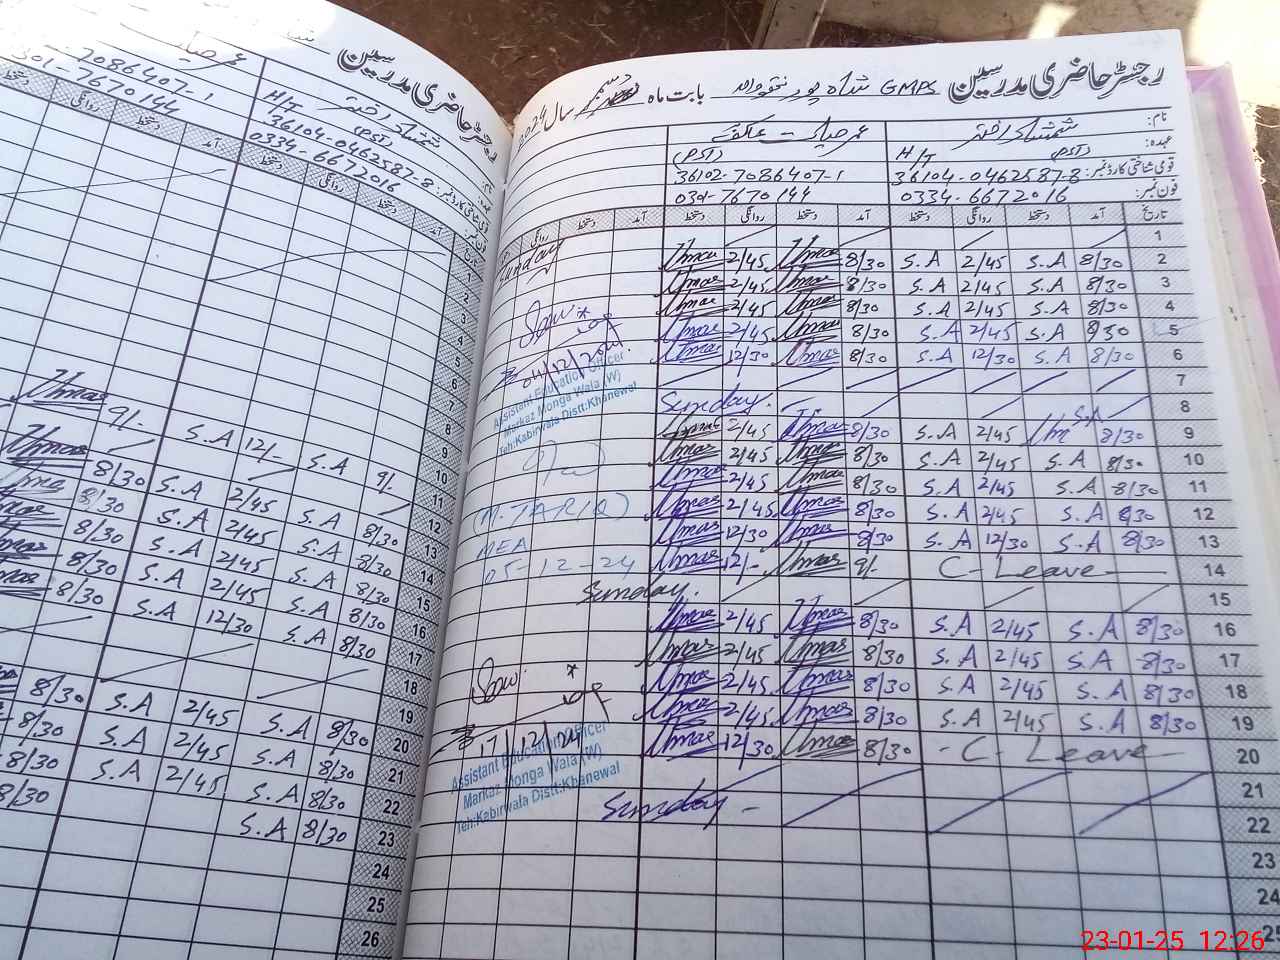 رجسٹر حاضری مدرسین GMPS شاہ پور بابت ماہ دسمبر سال 2024
نام: شمشاد اختر عمر حیات
عہدہ: H/T (PST) (PST)
قومی شناختی کارڈ نمبر: 36104-0462587-8 36102-7086407-1
فون نمبر: 0334-6672016 0301-7670144
تاریخ آمد دستخط روانگی دستخط آمد دستخط روانگی دستخط آمد دستخط روانگی
1 Sunday
2 8/30 S.A 2/45 S.A 8/30 Umar 2/45 Umar
3 8/30 S.A 2/45 S.A 8/30 Umar 2/45 Umar
4 8/30 S.A 2/45 S.A 8/30 Umar 2/45 Umar
5 8/30 S.A 2/45 S.A 8/30 Umar 2/45 Umar
6 8/30 S.A 12/30 S.A 8/30 Umar 12/30 Umar
7
8 Sunday.
9 8/30 S.A 2/45 S.A 8/30 Umar 2/45 Umar
10 8/30 S.A 2/45 S.A 8/30 Umar 2/45 Umar
11 8/30 S.A 2/45 S.A 8/30 Umar 2/45 Umar
12 8/30 S.A 2/45 S.A 8/30 Umar 2/45 Umar
13 8/30 S.A 12/30 S.A 8/30 Umar 12/30 Umar
14 C-Leave 9/- Umar 12/- Umar
15 Sunday.
16 8/30 S.A 2/45 S.A 8/30 Umar 2/45 Umar
17 8/30 S.A 2/45 S.A 8/30 Umar 2/45 Umar
18 8/30 S.A 2/45 S.A 8/30 Umar 2/45 Umar
19 8/30 S.A 2/45 S.A 8/30 Umar 2/45 Umar
20 - C-Leave 8/30 Umar 12/30 Umar
21
22 Sunday -
23
24
25
04/12/2024
Assistant Education Officer
Markaz Monga Wala (W)
Teh:Kabirwala Distt:Khanewal
(M.TARIQ)
MEA
05-12-24
17/12/24
Assistant Education Officer
Markaz Monga Wala (W)
Teh:Kabirwala Distt:Khanewal
رجسٹر حاضری مدرسین
شمشاد اختر عمر حیات
H/T (PST)
36104-0462587-8 7086407-1
0334-6672016 301-7670144
آمد دستخط روانگی دستخط آمد دستخط
1
2
3
4
5
6
7
8
9
10
11 9/- S.A 12/- S.A 9/- Umar
12
13 8/30 S.A 2/45 S.A 8/30 Umar
14 8/30 S.A 2/45 S.A 8/30
15 8/30 S.A 2/45 S.A 8/30
16 8/30 S.A 2/45 S.A 8/30
17 8/30 S.A 12/30 S.A 8/30
18
19
20 8/30 S.A 2/45 S.A 8/30
21 8/30 S.A 2/45 S.A 8/30
22 8/30 S.A 2/45 S.A 8/30
23 8/30 S.A
24
25
26
23-01-25 12:26